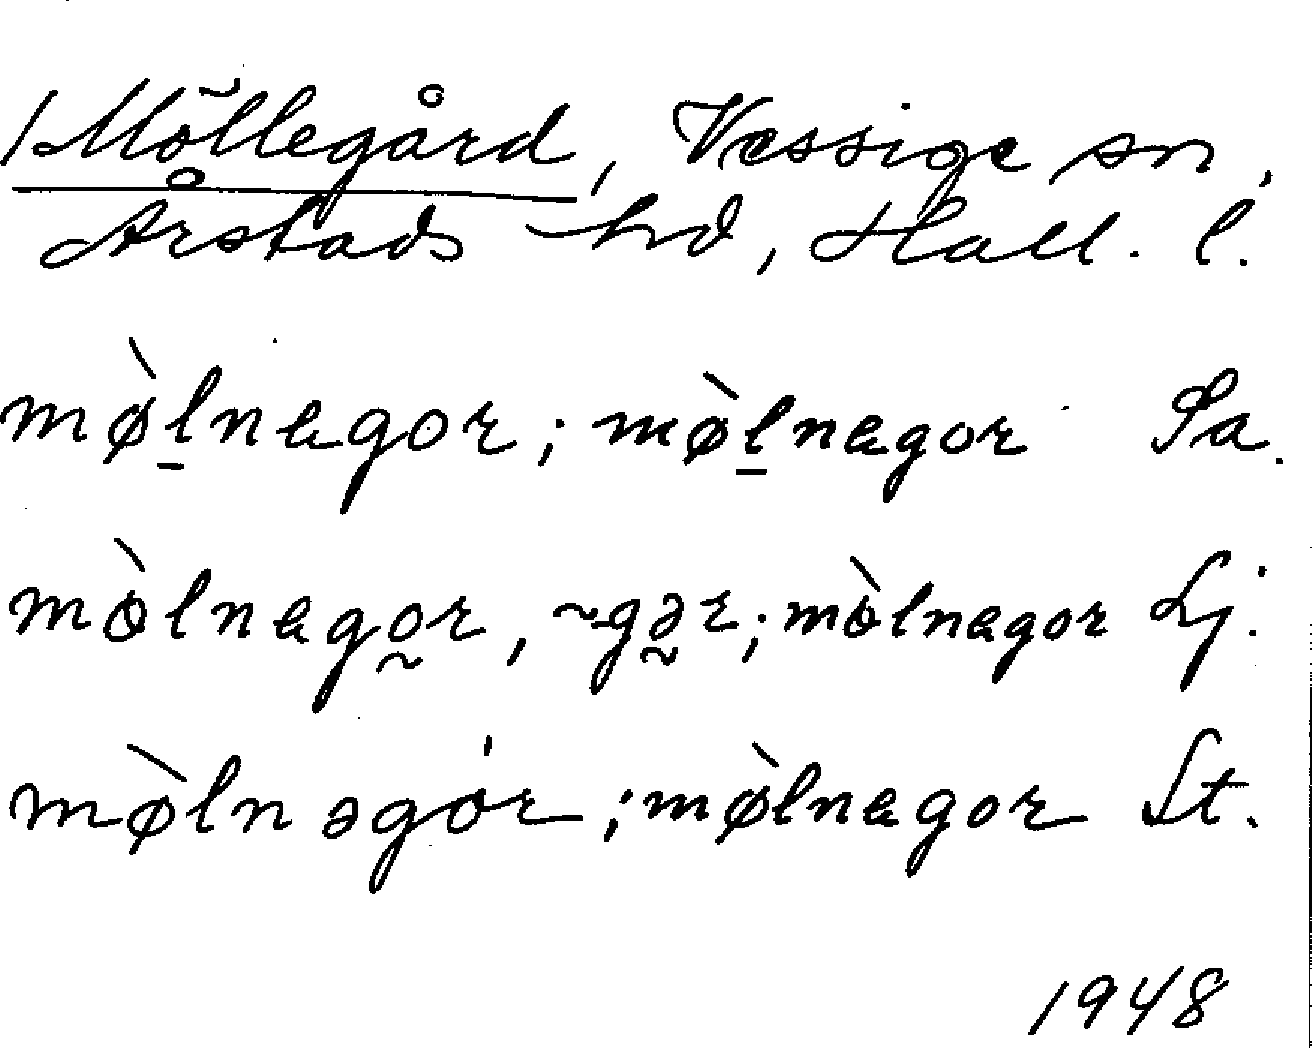 /Möllegård, Vessige sn,
Årstads hd, Hall. l.
mø̀l̠nagor; mø̀l̠nagor Sa.
mòlnago̰r, ~gə̰r; mòlnagor Lj.
mø̀lnəgór; mø̀lnagor St.
1948